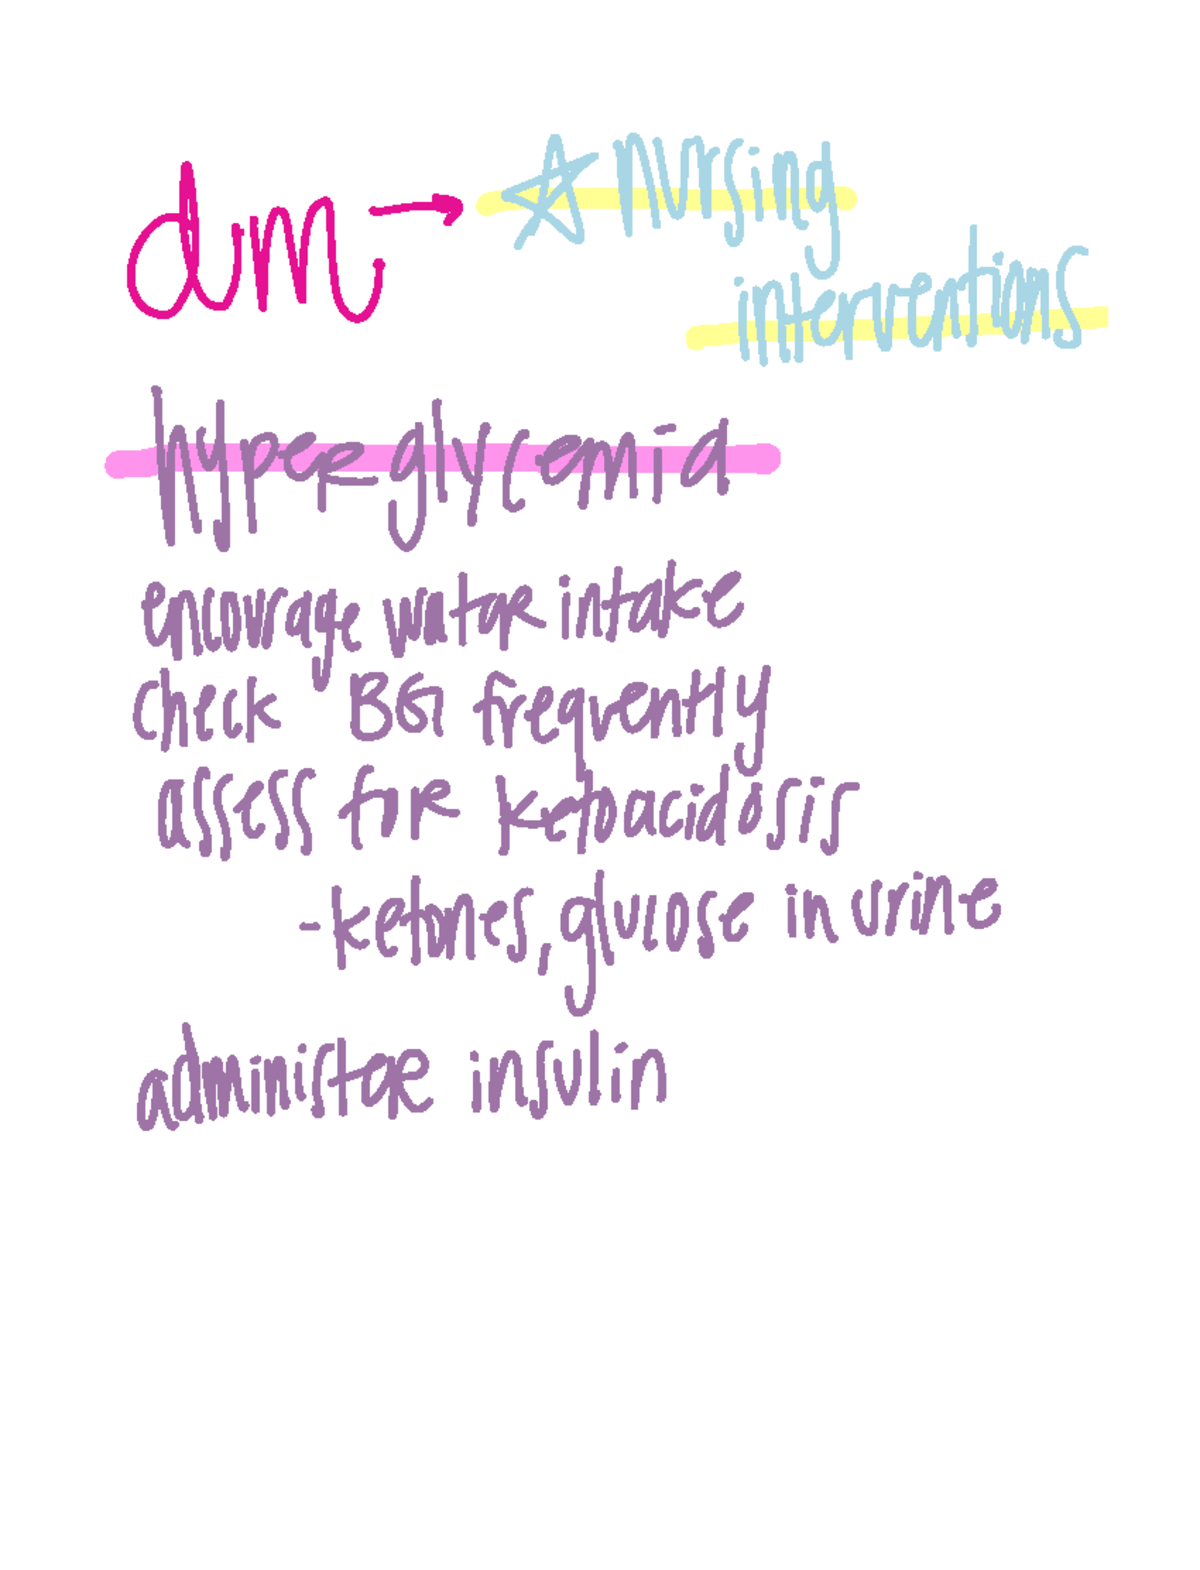 dm → ☆ nursing
interventions
hyperglycemia
encourage water intake
check BG frequently
assess for ketoacidosis
-ketones, glucose in urine
administer insulin